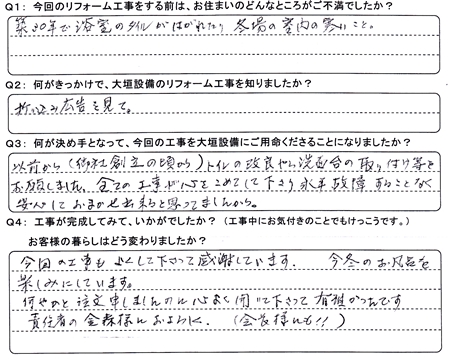 Q1: 今回のリフォーム工事をする前は、お住まいのどんなところがご不満でしたか?
築30年で浴室のタイルがはがれたり 冬場の室内の寒いこと。
Q2: 何がきっかけで、大垣設備のリフォーム工事を知りましたか?
折り込み広告を見て。
Q3: 何が決め手となって、今回の工事を大垣設備にご用命くださることになりましたか?
以前から(御社創立の頃から)トイレの改良やら洗面台の取りつけ等を
お願しました。全ての工事が心をこめてして下さり永年故障することなく
安心しておまかせ出来ると思ってましたから。
Q4: 工事が完成してみて、いかがでしたか? (工事中にお気付きのことでもけっこうです。)
お客様の暮らしはどう変わりましたか?
今回の工事もよくして下さって感謝しています. 今冬のお風呂を
楽しみにしています。
何やかと注文申しましたのに心よく聞いて下さって有難かったです
責任者の金森様によろしく. (会長様にも!!)